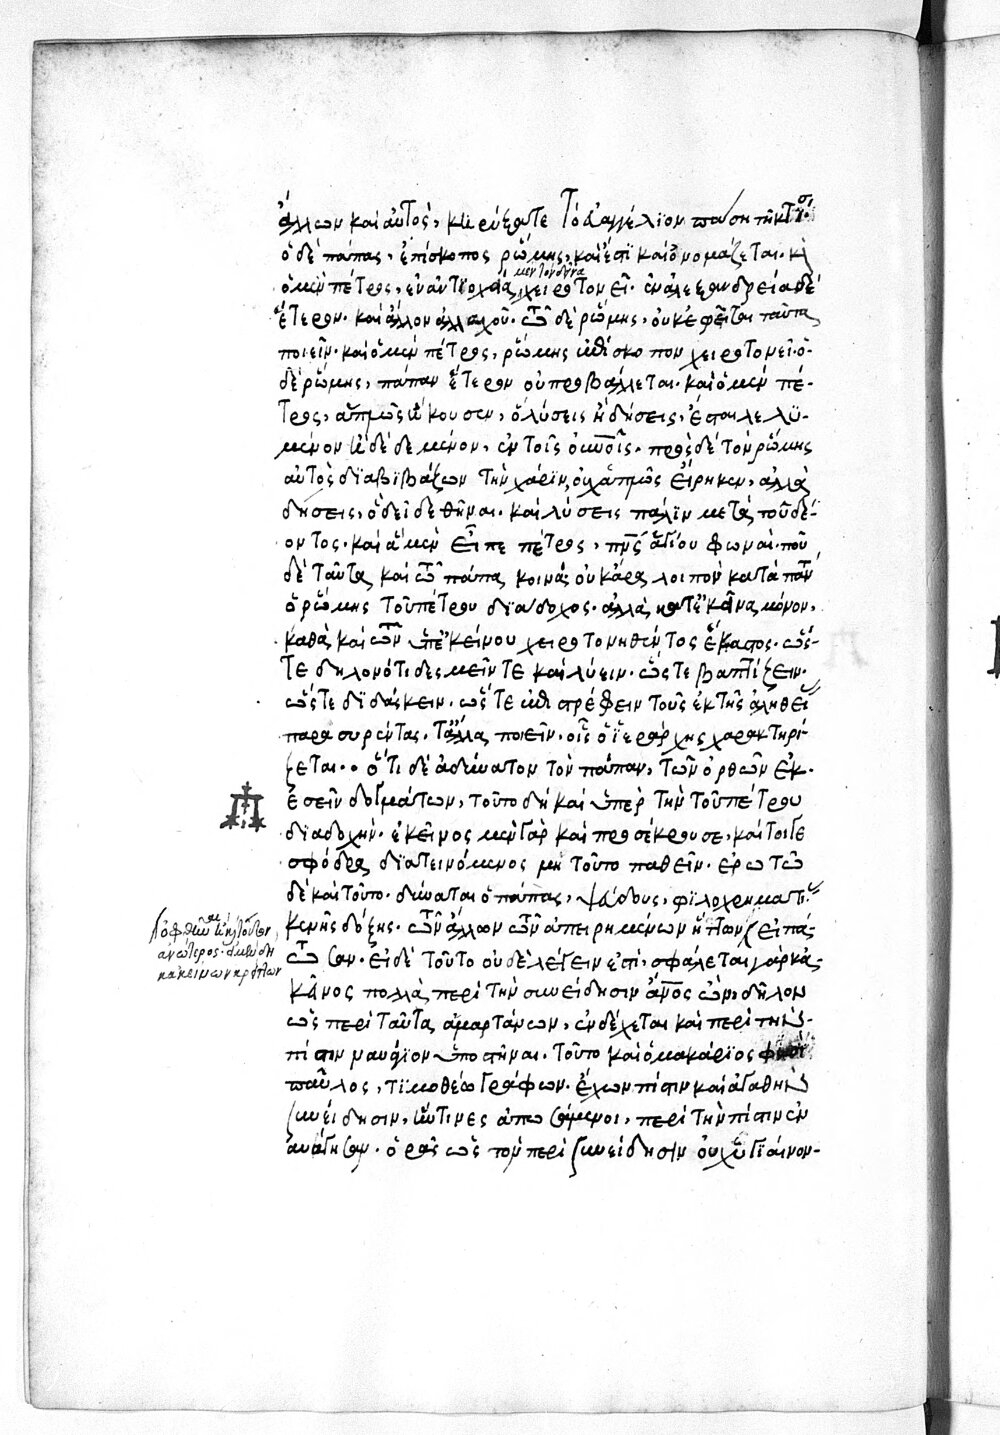 ἄλλων καὶ αὐτός, κηρύξατε τὸ εὐαγγέλιον πάσῃ τῇ κτίσει·
ὁ δὲ πάπας, ἐπίσκοπος ῥώμης, καὶ ἔστι καὶ ὀνομάζεται. καὶ
ὁ μὲν πέτρος, ἐν ἀντιοχείᾳ, μὲν τόνδέ τινα χειροτονεῖ· ἐν ἀλεξανδρείᾳ δὲ
ἕτερον· καὶ ἄλλον ἀλλαχοῦ. τῷ δὲ ῥώμης, οὐκ ἐφεῖται ταῦτα
ποιεῖν. καὶ ὁ μὲν πέτρος, ῥώμης ἐπίσκοπον χειροτονεῖ· ὁ
δὲ ῥώμης, πάπαν ἕτερον οὐ προβάλλεται. καὶ ὁ μὲν πέ-
τρος, ἁπλῶς ἤκουσεν, ὃ λύσεις ἢ δήσεις, ἔσται λελυ-
μένον ἢ δεδεμένον, ἐν τοῖς οὐνοῖς. πρὸς δὲ τὸν ῥώμης
αὐτὸς διαβιβάζων τὴν χάριν, οὐχ ἁπλῶς εἴρηκεν, ἀλλὰ
δήσεις, ὃ δεῖ δεθῆναι. καὶ λύσεις πάλιν μετὰ τοῦ δέ-
οντος. καὶ ἃ μὲν εἶπε πέτρος, πνς ἁγίου φωναί· ποῦ
δὲ ταῦτα καὶ τῷ πάπα κοινά; οὐκ ἄρα λοιπὸν κατὰ πάντα
ὁ ῥώμης τοῦ πέτρου διάδοχος. ἀλλὰ κατ' ἐκεῖνα μόνον,
καθὰ καὶ τῶν ὑπ' ἐκείνου χειροτονηθέντος ἕκαστος. ὥς-
τε δηλονότι δεσμεῖν τε καὶ λύειν. ὥστε βαπτίζειν.
ὥστε διδάσκειν. ὥστε ἐπιστρέφειν τοὺς ἐκ τῆς ἀληθείας
παρασυρέντας. τἄλλα ποιεῖν, οἷς ὁ ἱεράρχης χαρακτηρί-
ζεται. ὅτι δὲ ἀδύνατον τὸν πάπαν, τῶν ὀρθῶν ἐκ-
πεσεῖν δογμάτων, τοῦτο δὴ καὶ ὑπὲρ τὴν τοῦ πέτρου
διαδοχήν. ἐκεῖνος μὲν γὰρ καὶ προσέκρουσε, καίτοιγε
σφόδρα διατεινόμενος μὴ τοῦτο παθεῖν. ἐρωτῶ
δὲ καὶ τοῦτο. δύναται ὁ πάπας, ψεύδους, φιλοχρηματίας,
κενῆς δόξης. τῶν ἄλλων τῶν ἀπειρημένων ἡττων
. εἰ δὲ τοῦτο οὐδὲ λέγειν ἔστι, σφάλεται γὰρ κἀ-
κεῖνος πολλὰ περὶ τὴν συνείδησιν ἄνος ὤν, δῆλον
ὡς περὶ ταῦτα ἁμαρτάνων, ἐνδέχεται καὶ περὶ τὴν
πίστιν ναυάγιον ὑποστῆναι. τοῦτο καὶ ὁ μακάριος φησὶ
παῦλος, τιμοθέῳ γράφων. ἔχων πίστιν καὶ ἀγαθὴν
συνείδησιν, ἥν τινες ἀπωσάμενοι, περὶ τὴν πίστιν ἐν
αυάγησαν. ὁρᾷς ὡς τὸν περὶ συνείδησιν οὐχ ὑγιαίνον-
ἀνώτερος
κἀκείνων